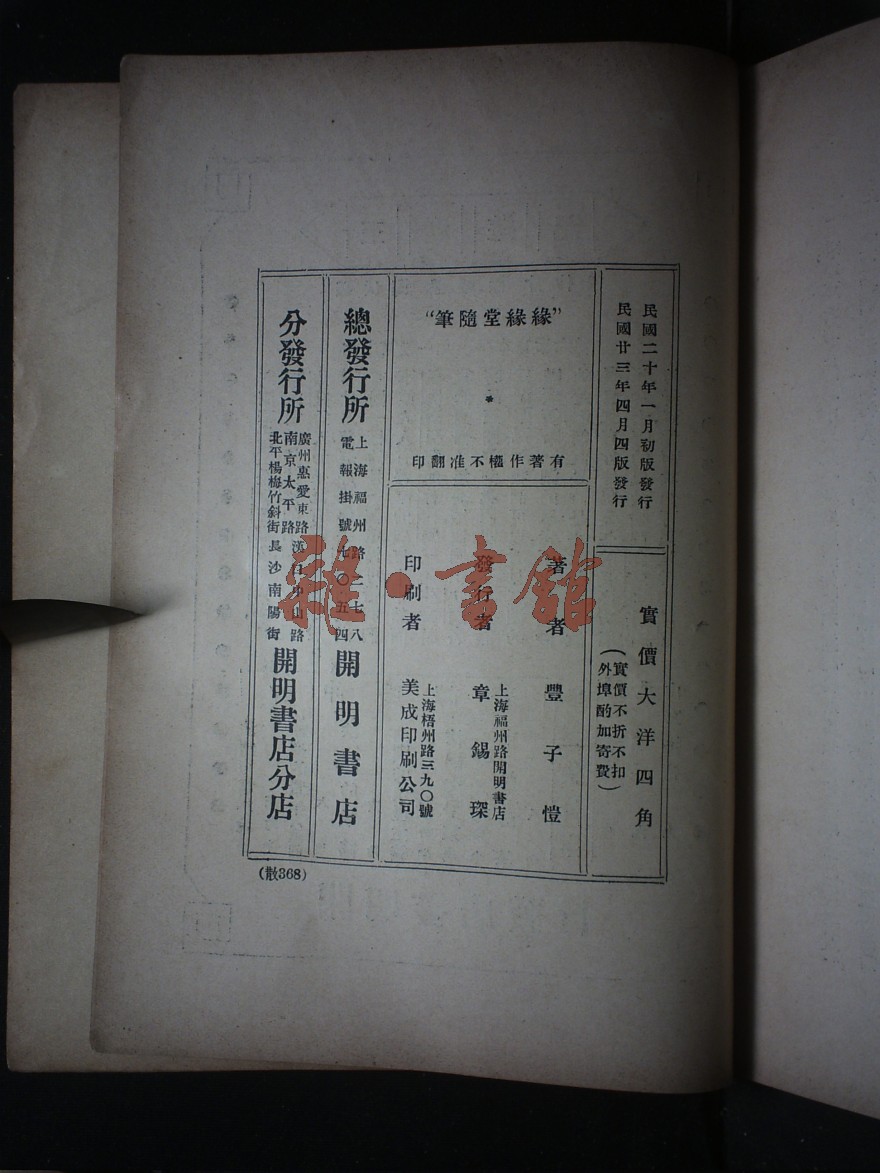 民國二十年一月初版發行
民國廿三年四月四版發行
實價大洋四角
(實價不折不扣
外埠酌加寄費)
“緣緣堂隨筆”
*
有著作權不准翻印
著者 豐子愷
發行者 上海福州路開明書店
章錫琛
印刷者 上海梧州路三九〇號
美成印刷公司
總發行所 上海福州路二七八
電報掛號七〇五四
開明書店
分發行所 廣州惠愛東路 漢口中山路
南京太平路
北平楊梅竹斜街 長沙南陽街
開明書店分店
(散368)
雜·書館